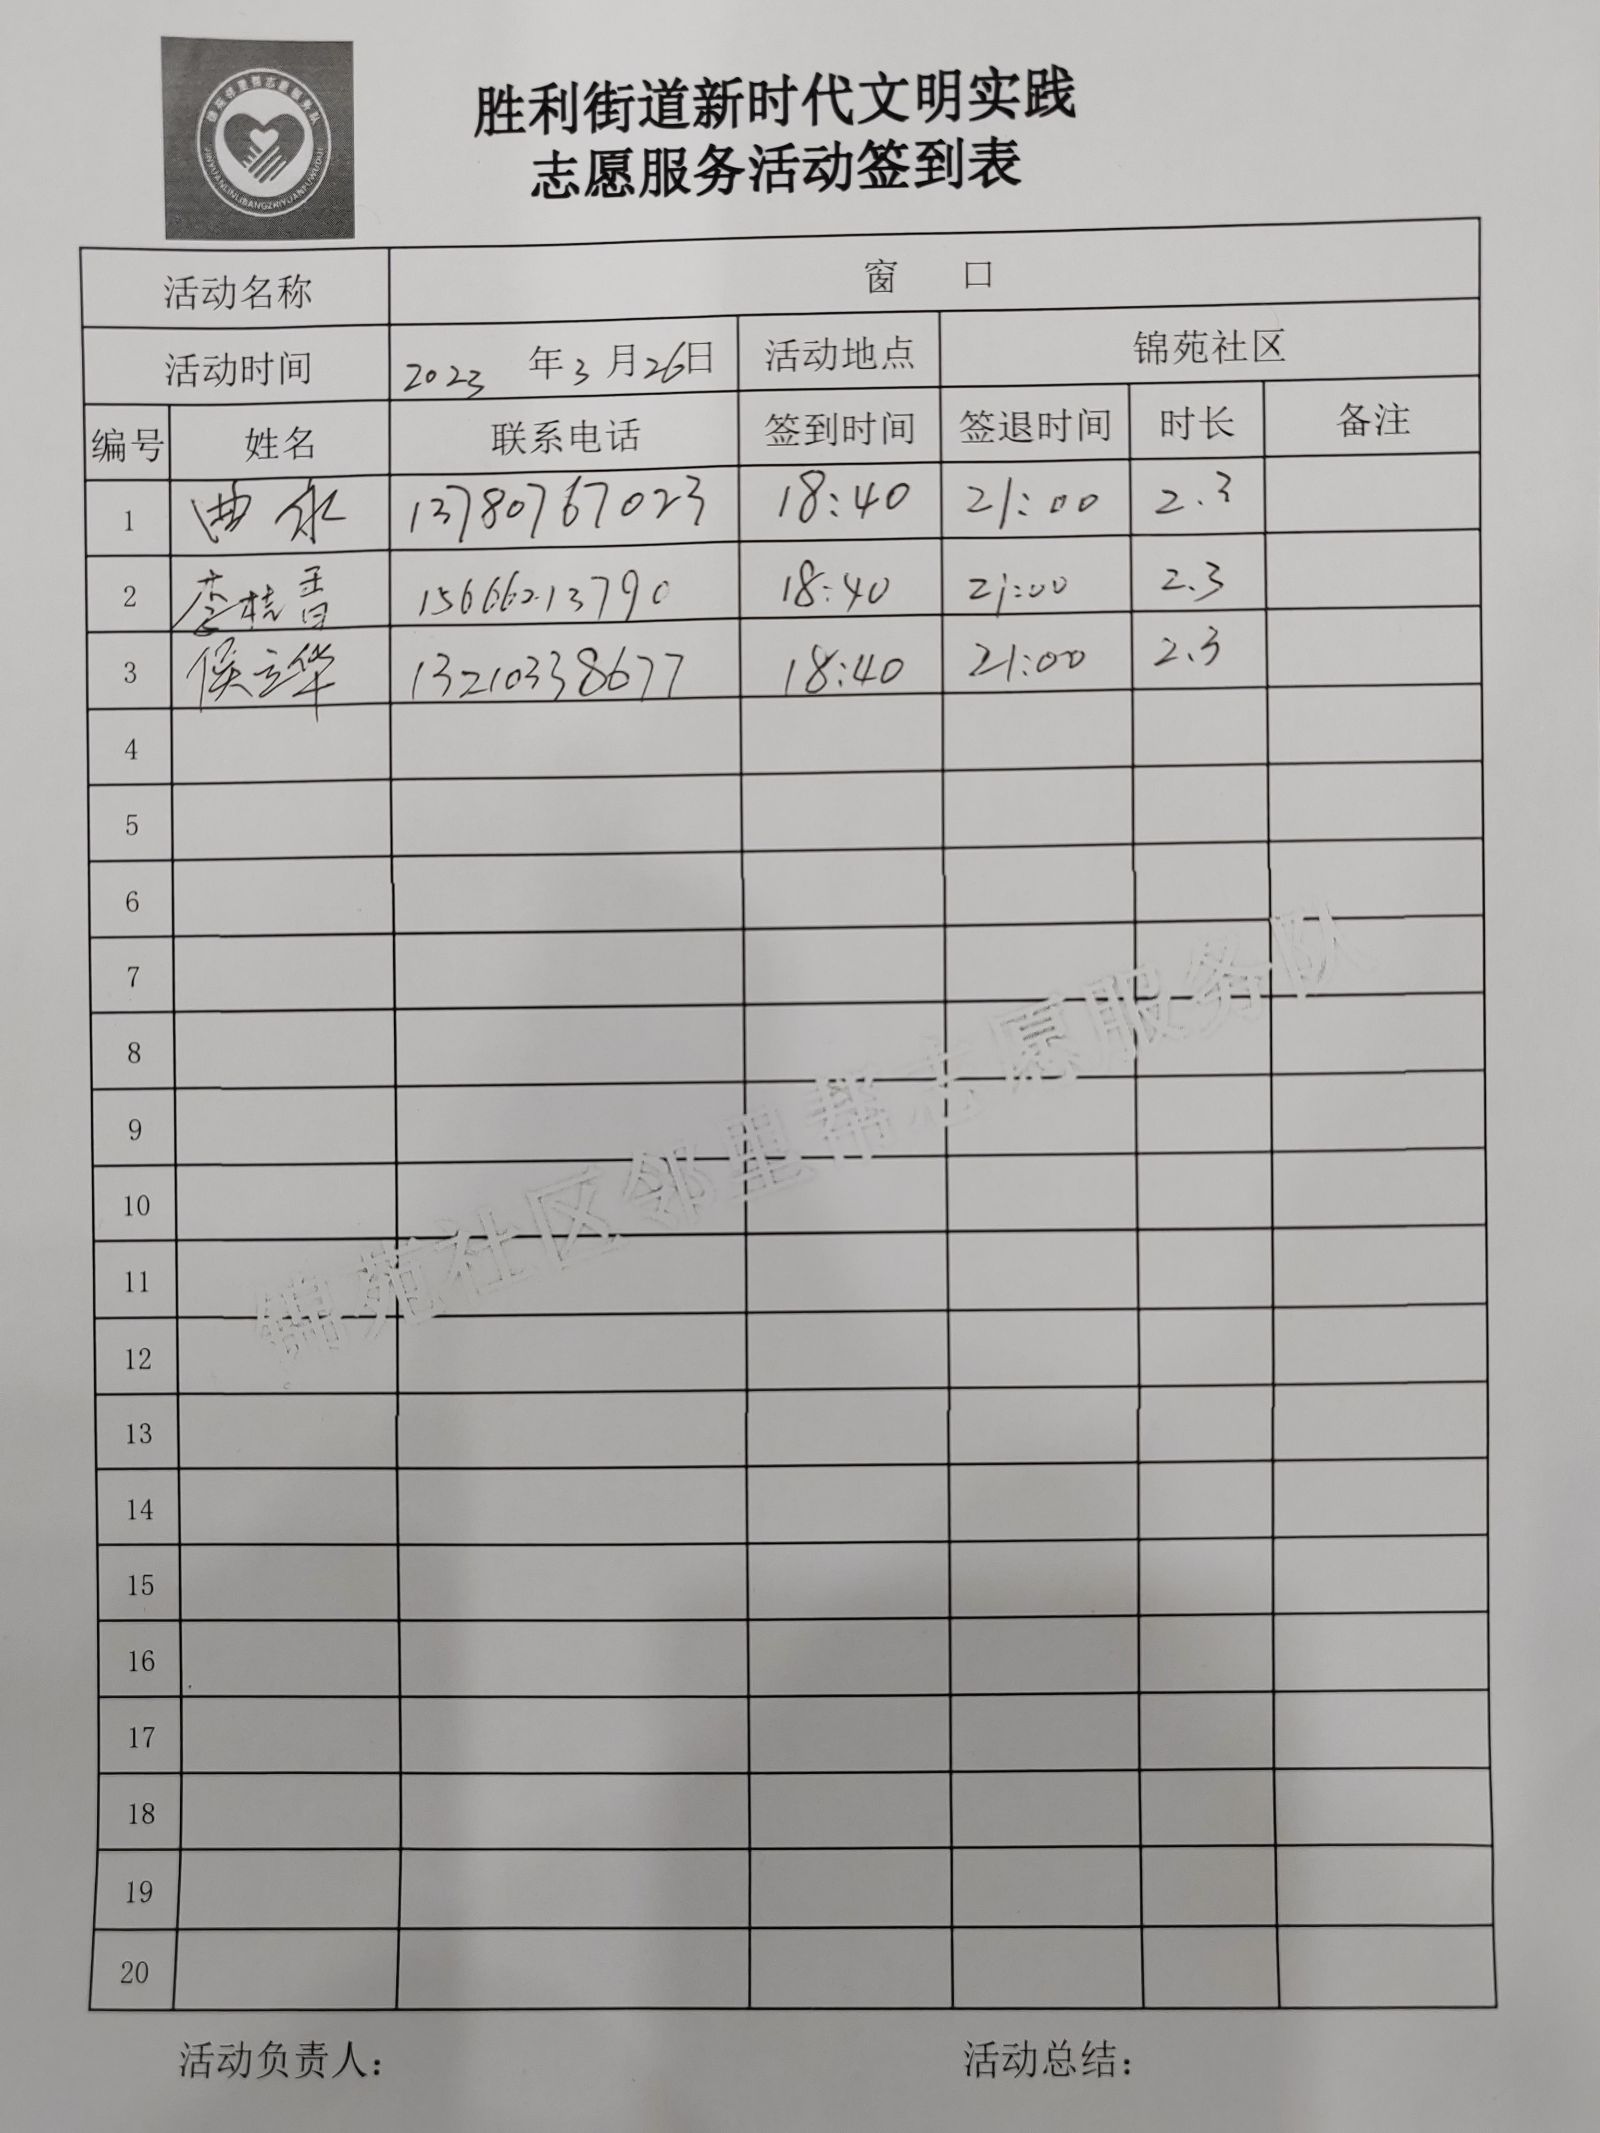 胜利街道新时代文明实践
志愿服务活动签到表
活动名称 窗 口
活动时间 2023 年 3 月 26 日 活动地点 锦苑社区
编号 姓名 联系电话 签到时间 签退时间 时长 备注
1 曲永 13780767023 18:40 21:00 2.3
2 李桂香 15666213790 18:40 21:00 2.3
3 侯立华 13210338677 18:40 21:00 2.3
4
5
6
7
8
9
10
11
12
13
14
15
16
17
18
19
20
锦苑社区邻里帮志愿服务队
活动负责人： 活动总结：